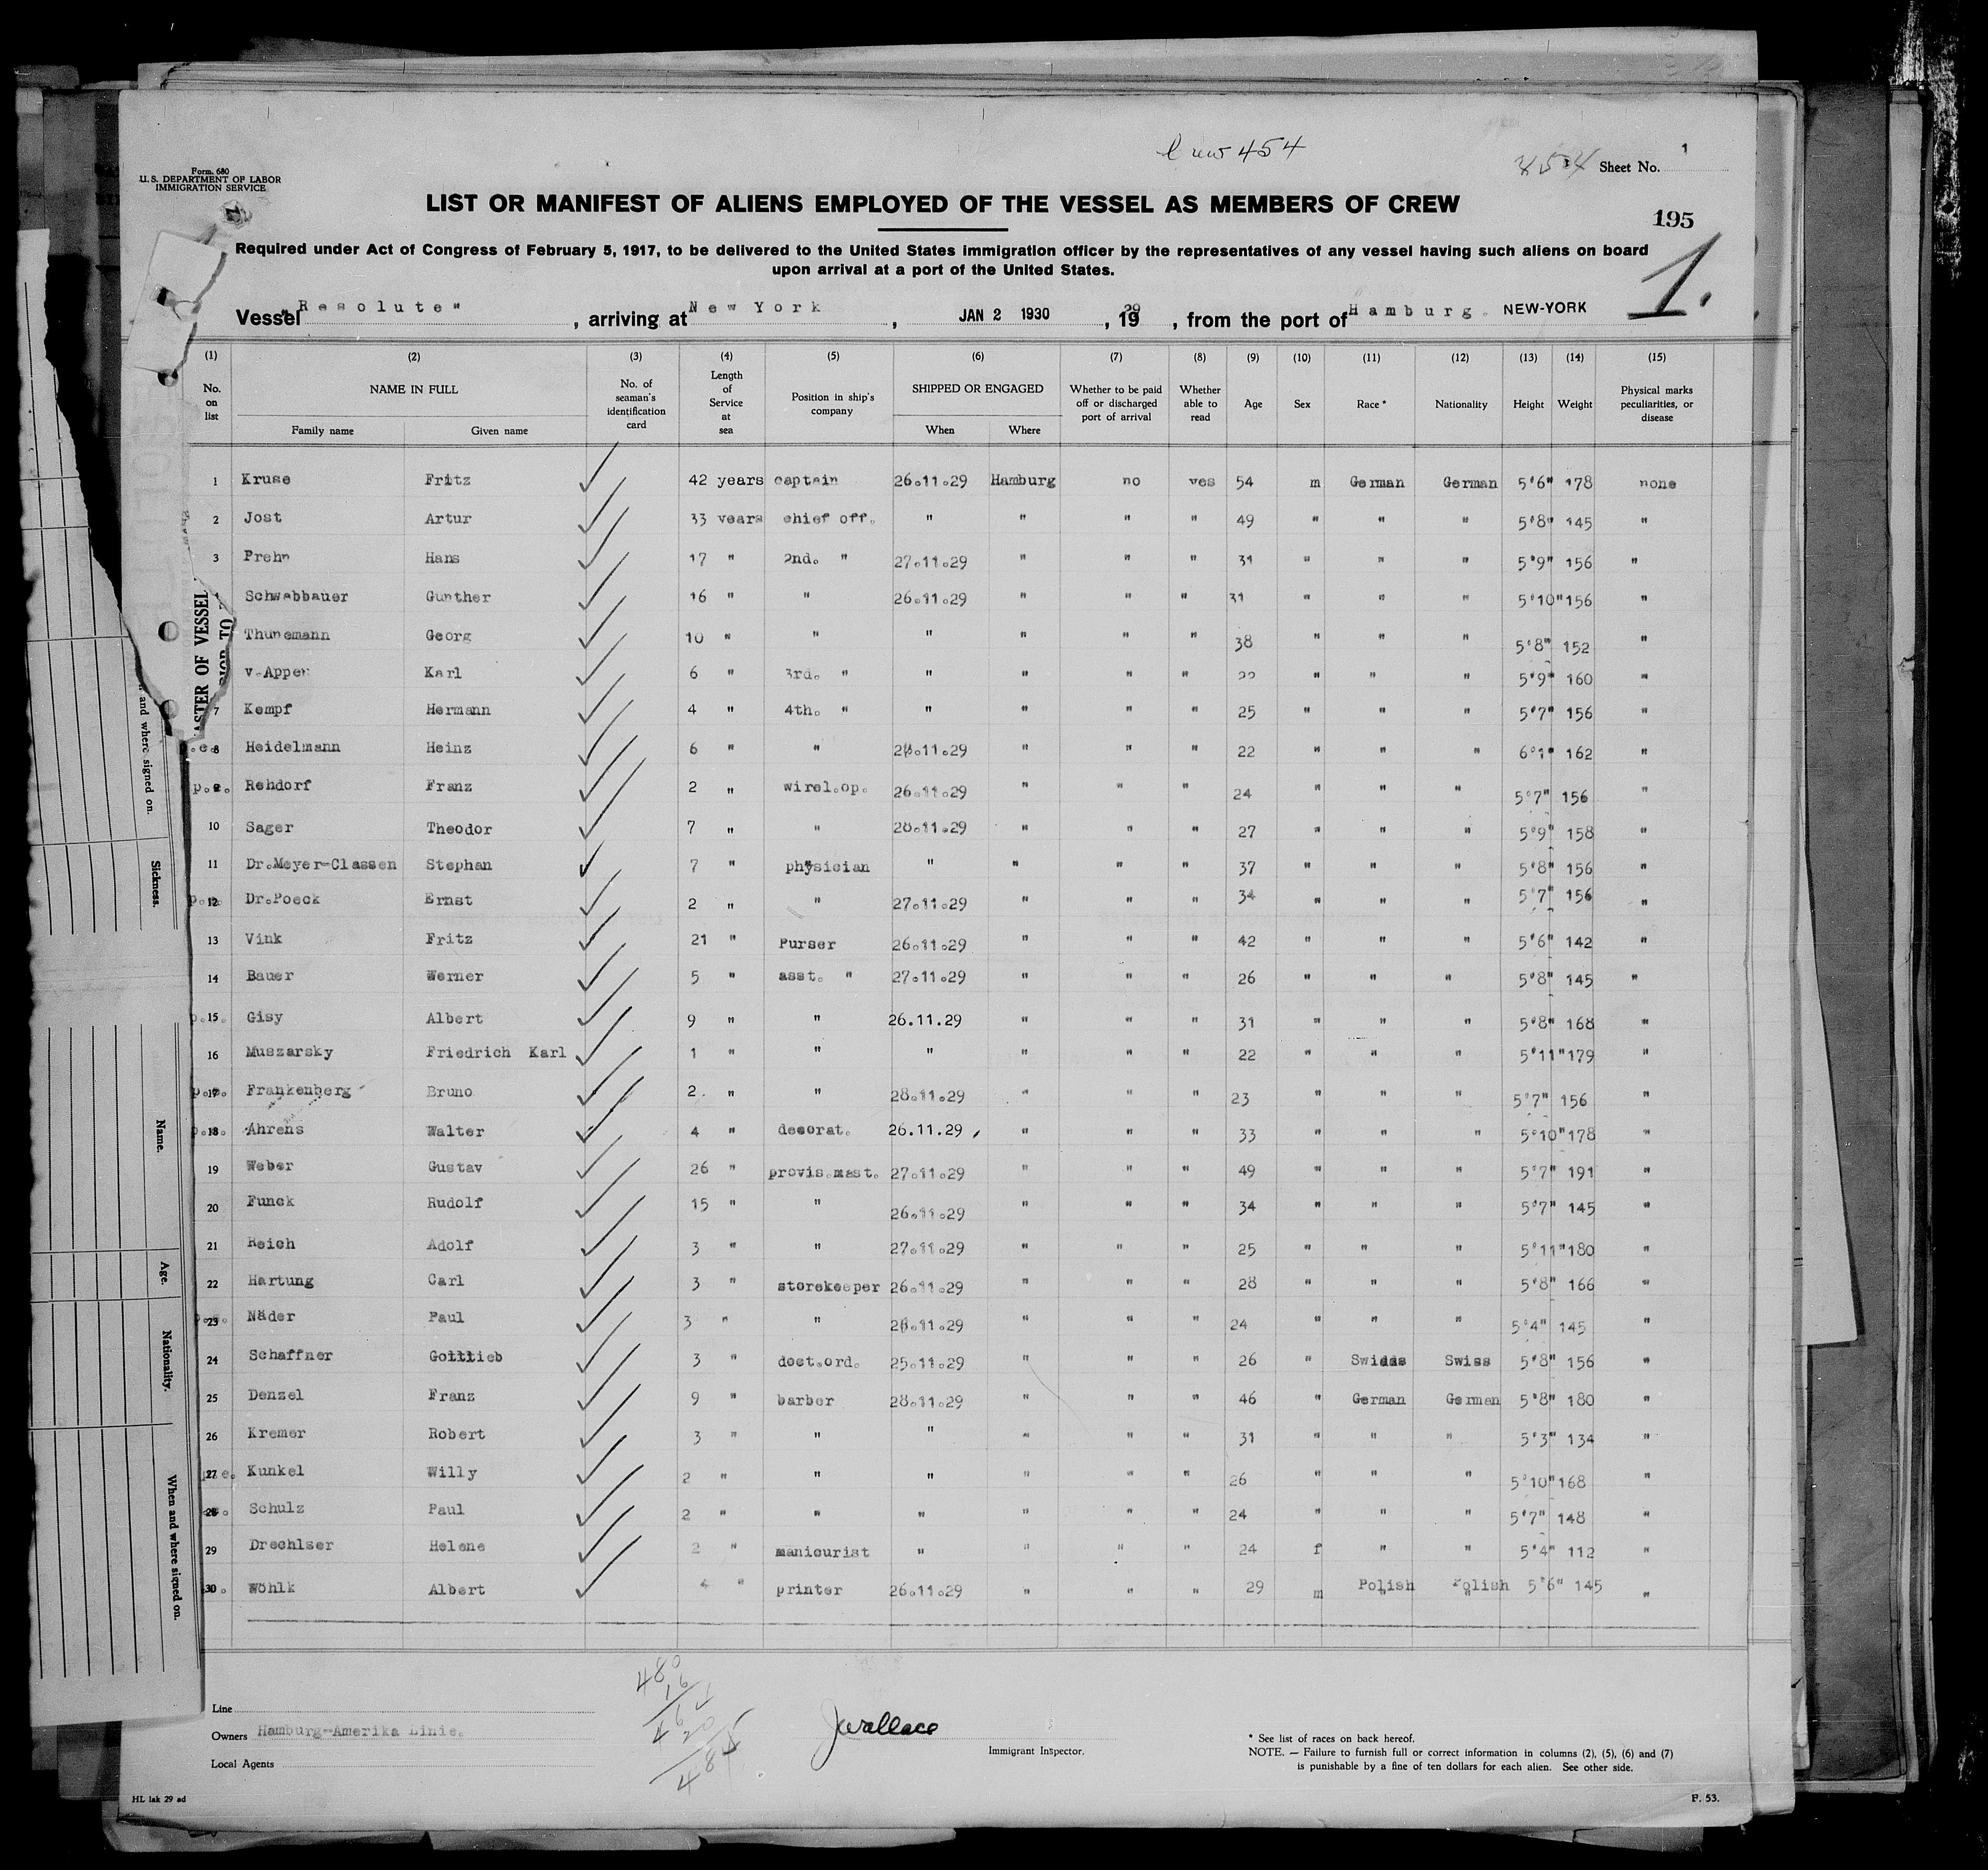 Crew 454
Form. 680
U. S. DEPARTMENT OF LABOR
IMMIGRATION SERVICE
454 Sheet No. 1
LIST OR MANIFEST OF ALIENS EMPLOYED OF THE VESSEL AS MEMBERS OF CREW
195
1.
Required under Act of Congress of February 5, 1917, to be delivered to the United States immigration officer by the representatives of any vessel having such aliens on board
upon arrival at a port of the United States.
Vessel "Resolute" , arriving at New York , JAN 2 1930 , 19 , from the port of Hamburg. NEW-YORK
(1) (2) (3) (4) (5) (6) (7) (8) (9) (10) (11) (12) (13) (14) (15)
No. on list NAME IN FULL Family name Given name No. of seaman's identification card Length of Service at sea Position in ship's company SHIPPED OR ENGAGED When Where Whether to be paid off or discharged port of arrival Whether able to read Age Sex Race * Nationality Height Weight Physical marks peculiarities, or disease
1 Kruse Fritz 42 years captain 26.11.29 Hamburg no yes 54 m German German 5'6" 178 none
2 Jost Artur 33 years chief off. " " " " 49 " " " 5'8" 145 "
3 Prehn Hans 17 " 2nd. " 27.11.29 " " " 31 " " " 5'9" 156 "
Schwabbauer Gunther 16 " " 26.11.29 " " " 31 " " " 5'10" 156 "
Thunemann Georg 10 " " " " " " 38 " " " 5'8" 152 "
v.Appen Karl 6 " 3rd. " " " " " 22 " " " 5'9" 160 "
7 Kempf Hermann 4 " 4th. " " " " " 25 " " " 5'7" 156 "
8 Heidelmann Heinz 6 " " .11.29 " " " 22 " " " 6'1" 162 "
p.e. Rehdorf Franz 2 " wirel.op. 26.11.29 " " " 24 " " " 5'7" 156 "
10 Sager Theodor 7 " " 28.11.29 " " " 27 " " " 5'9" 158 "
11 Dr.Meyer-Classen Stephan 7 " physician " " " " 37 " " " 5'8" 156 "
12 Dr.Poeck Ernst 2 " " 27.11.29 " " " 34 " " " 5'7" 156 "
13 Vink Fritz 21 " Purser 26.11.29 " " " 42 " " " 5'6" 142 "
14 Bauer Werner 5 " asst. " 27.11.29 " " " 26 " " " 5'8" 145 "
15 Gisy Albert 9 " " 26.11.29 " " " 31 " " " 5'8" 168 "
16 Muszarsky Friedrich Karl 1 " " " " " " 22 " " " 5'11" 179 "
17 Frankenberg Bruno 2. " " 28.11.29 " " " 23 " " " 5'7" 156 "
18 Ahrens Walter 4 " decorat. 26.11.29 " " " 33 " " " 5'10" 178 "
19 Weber Gustav 26 " provis.mast. 27.11.29 " " " 49 " " " 5'7" 191 "
20 Funck Rudolf 15 " " 26.11.29 " " " 34 " " " 5'7" 145 "
21 Reich Adolf 3 " " 27.11.29 " " " 25 " " " 5'11" 180 "
22 Hartung Carl 3 " storekeeper 26.11.29 " " " 28 " " " 5'8" 166 "
23 Näder Paul 3 " " .11.29 " " " 24 " " " 5'4" 145 "
24 Schaffner Gottlieb 3 " doct.ord. 25.11.29 " " " 26 " Swiss Swiss 5'8" 156 "
25 Denzel Franz 9 " barber 28.11.29 " " " 46 " German German 5'8" 180 "
26 Kremer Robert 3 " " " " " " 31 " " " 5'3" 134 "
27 Kunkel Willy 2 " " " " " " 26 " " " 5'10" 168 "
28 Schulz Paul 2 " " " " " " 24 " " " 5'7" 148 "
29 Drechlser Helene 2 " manicurist " " " " 24 f " " 5'4" 112 "
30 Wöhlk Albert 4 " printer 26.11.29 " " " 29 m Polish Polish 5'6" 145 "
Line
Owners Hamburg-Amerika Linie.
Local Agents
JWallace
Immigrant Inspector.
* See list of races on back hereof.
NOTE. — Failure to furnish full or correct information in columns (2), (5), (6) and (7)
is punishable by a fine of ten dollars for each alien. See other side.
HL lak 29 ad
F. 53.
ASTER OF VESSEL
and where signed on.
Sickness.
Name.
Age.
Nationality.
When and where signed on.